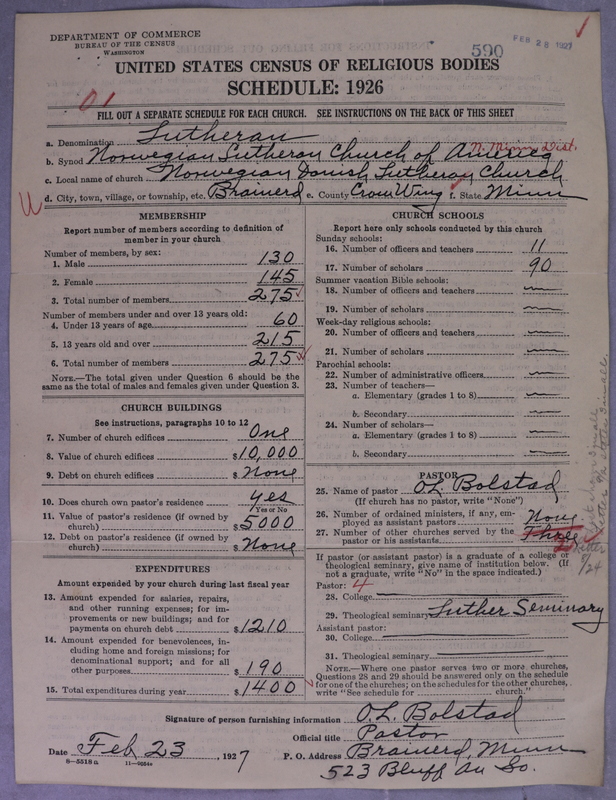 DEPARTMENT OF COMMERCE
BUREAU OF THE CENSUS
WASHINGTON
590
FEB 28 1927
UNITED STATES CENSUS OF RELIGIOUS BODIES
SCHEDULE: 1926
01
FILL OUT A SEPARATE SCHEDULE FOR EACH CHURCH. SEE INSTRUCTIONS ON THE BACK OF THIS SHEET
a. Denomination Lutheran
N. Minn. Dist.
b. Synod Norwegian Lutheran Church of America
c. Local name of church Norwegian Danish Lutheran Church
d. City, town, village, or township, etc. Brainerd e. County Crow Wing f. State Minn
MEMBERSHIP
Report number of members according to definition of
member in your church
Number of members, by sex:
1. Male 130
2. Female 145
3. Total number of members 275
Number of members under and over 13 years old:
4. Under 13 years of age 60
5. 13 years old and over 215
6. Total number of members 275
NOTE.—The total given under Question 6 should be the
same as the total of males and females given under Question 3.
CHURCH BUILDINGS
See instructions, paragraphs 10 to 12
7. Number of church edifices One
8. Value of church edifices $10,000
9. Debt on church edifices $ None
10. Does church own pastor's residence yes
Yes or No
11. Value of pastor's residence (if owned by
church) $ 5000
12. Debt on pastor's residence (if owned by
church) $ None
EXPENDITURES
Amount expended by your church during last fiscal year
13. Amount expended for salaries, repairs,
and other running expenses; for im-
provements or new buildings; and for
payments on church debt $ 1210
14. Amount expended for benevolences, in-
cluding home and foreign missions; for
denominational support; and for all
other purposes $ 190
15. Total expenditures during year $ 1400
CHURCH SCHOOLS
Report here only schools conducted by this church
Sunday schools:
16. Number of officers and teachers 11
17. Number of scholars 90
Summer vacation Bible schools:
18. Number of officers and teachers
19. Number of scholars
Week-day religious schools:
20. Number of officers and teachers
21. Number of scholars
Parochial schools:
22. Number of administrative officers
23. Number of teachers—
a. Elementary (grades 1 to 8)
b. Secondary
24. Number of scholars—
a. Elementary (grades 1 to 8)
b. Secondary
PASTOR
25. Name of pastor O.L. Bolstad
(If church has no pastor, write "None")
26. Number of ordained ministers, if any, em-
ployed as assistant pastors None
27. Number of other churches served by the
pastor or his assistants Three
If pastor (or assistant pastor) is a graduate of a college or
theological seminary, give name of institution below. (If
not a graduate, write "No" in the space indicated.)
Pastor: 4
28. College
29. Theological seminary Luther Seminary
Assistant pastor:
30. College
31. Theological seminary
NOTE.—Where one pastor serves two or more churches,
Questions 28 and 29 should be answered only on the schedule
for one of the churches; on the schedules for the other churches,
write "See schedule for church."
Signature of person furnishing information O.L. Bolstad
Official title Pastor
Date Feb 23, 1927 P. O. Address Brainerd, Minn
8—5518a 11—9554
523 Bluff Av So.